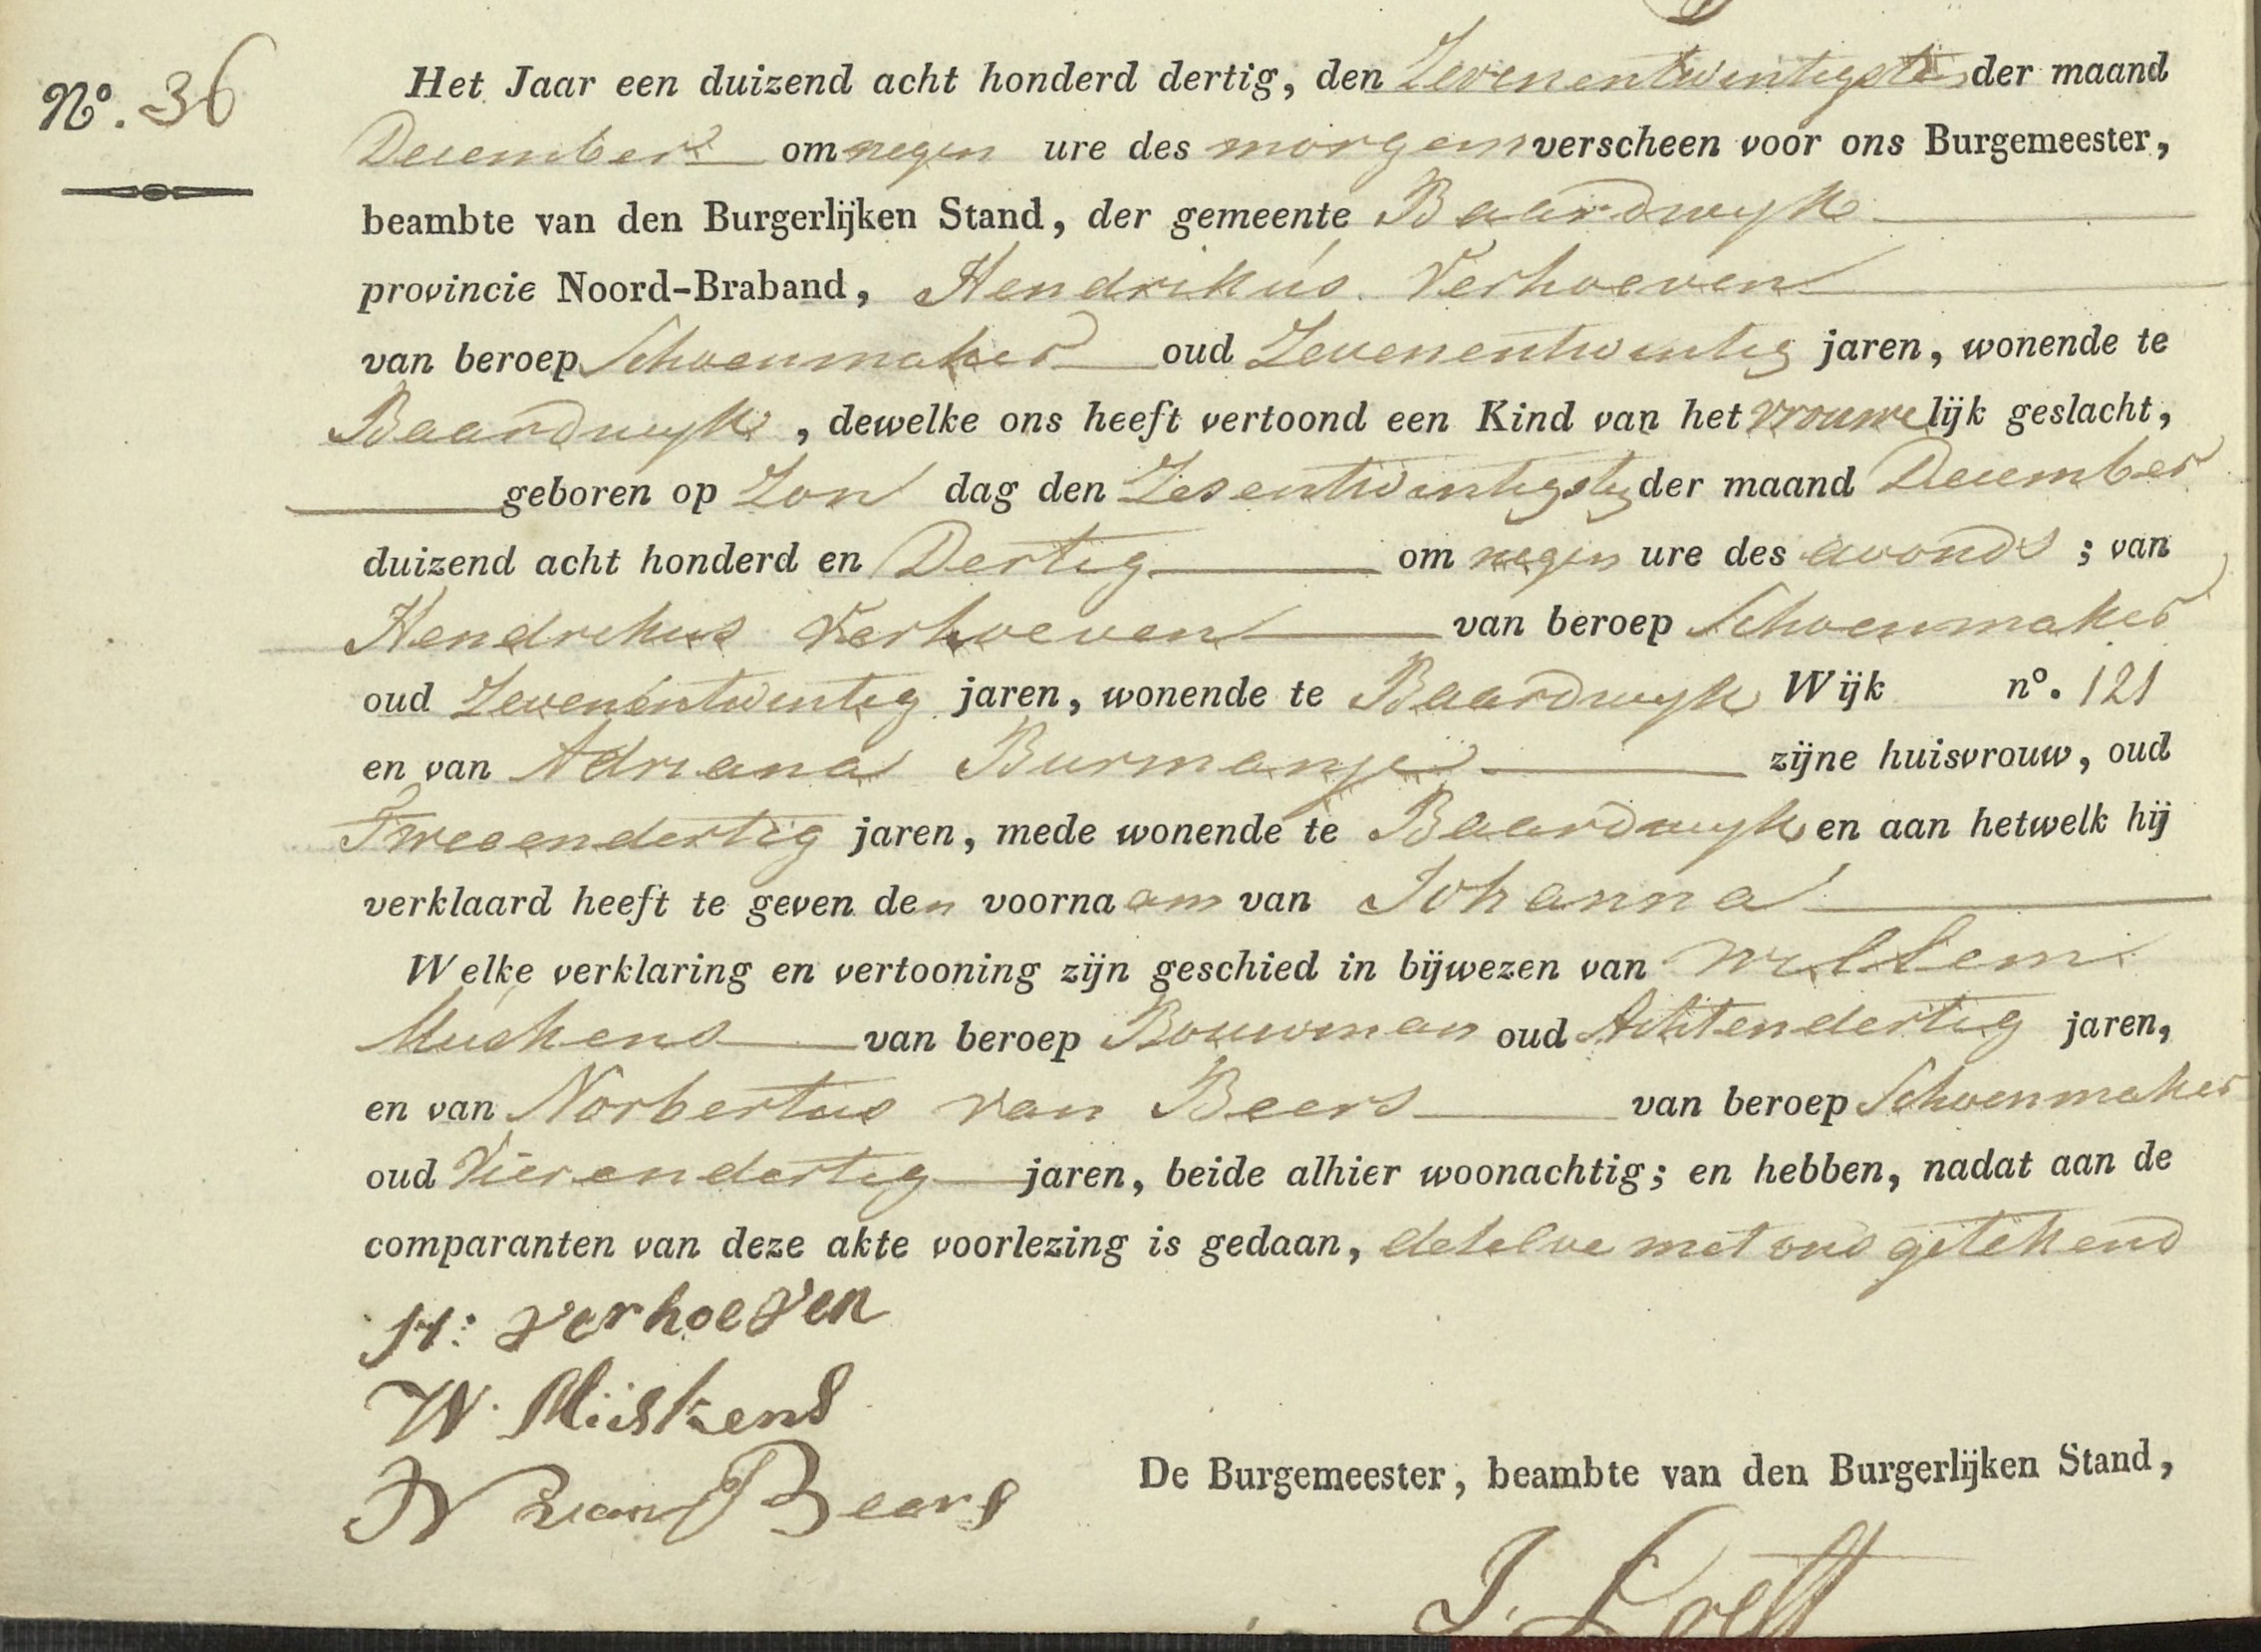 Nº. 36
Het Jaar een duizend acht honderd dertig, den Zevenentwintigsten der maand
December om negen ure des morgens verscheen voor ons Burgemeester,
beambte van den Burgerlijken Stand, der gemeente Baardwyk
provincie Noord-Braband, Hendrikus Verhoeven
van beroep Schoenmaker oud Zevenentwintig jaren, wonende te
Baardwyk, dewelke ons heeft vertoond een Kind van het vrouwelijk geslacht,
geboren op Zon dag den Zesentwintigste der maand December
duizend acht honderd en Dertig om negen ure des avonds; van
Hendrikus Verhoeven van beroep Schoenmaker
oud Zevenentwintig jaren, wonende te Baardwyk Wijk nº. 121
en van Adriana Burmanje zijne huisvrouw, oud
Tweeendertig jaren, mede wonende te Baardwyk en aan hetwelk hij
verklaard heeft te geven den voornaam van Johanna
Welke verklaring en vertooning zijn geschied in bijwezen van Willem
van beroep Bouwman oud Achtendertig jaren,
en van Norbertus van Beers van beroep Schoenmaker
oud Vierendertig jaren, beide alhier woonachtig; en hebben, nadat aan de
comparanten van deze akte voorlezing is gedaan, dezelve met ons getekend
H: Verhoeven
W. Muskens
N van Beers
De Burgemeester, beambte van den Burgerlijken Stand,
J.